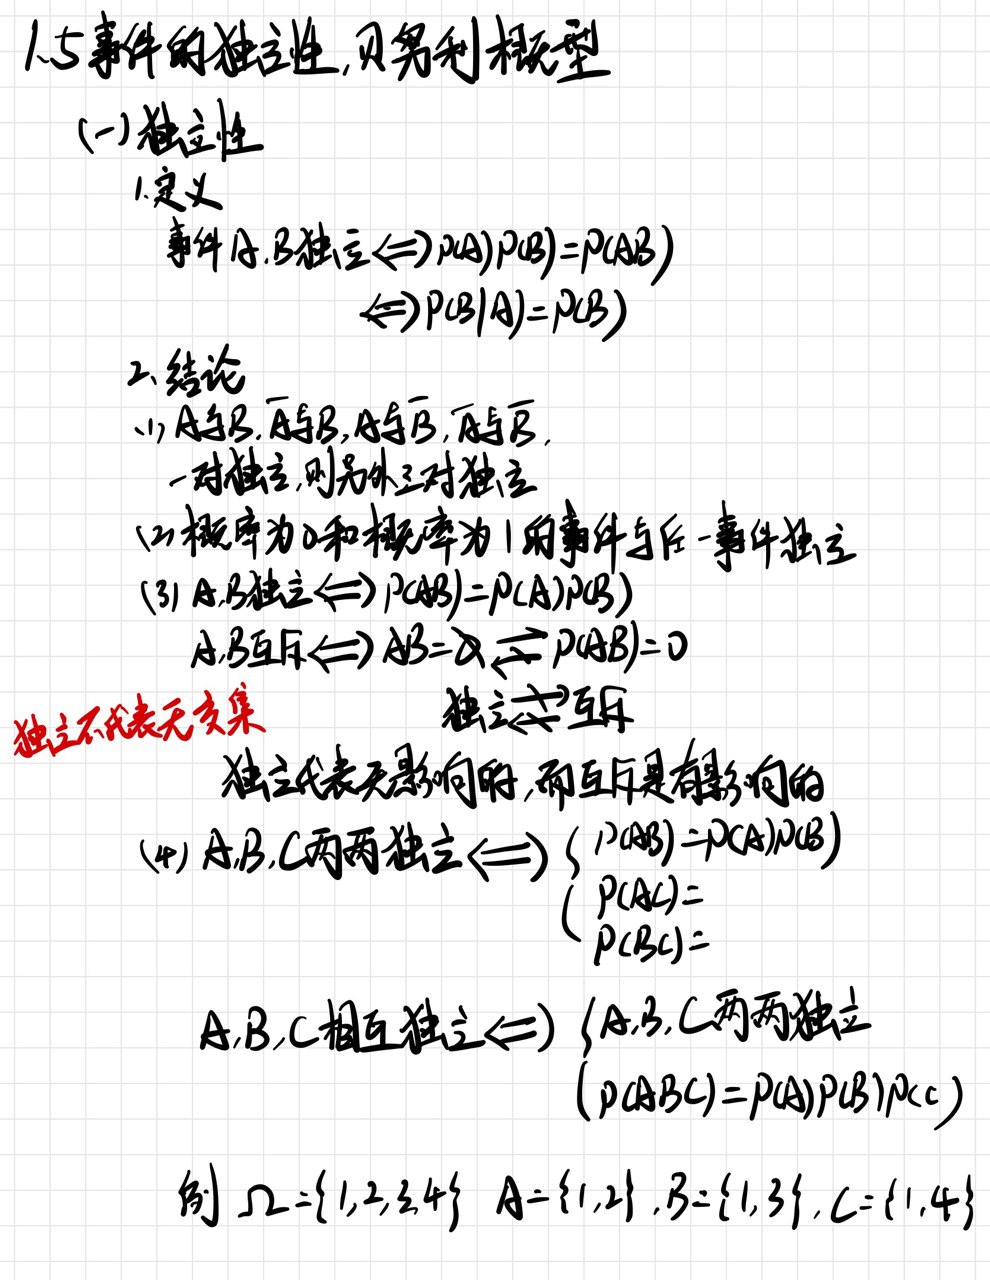 1.5事件的独立性,贝努利概型
(一)独立性
1.定义
事件A.B独立⟺P(A)P(B)=P(AB)
⟺P(B|A)=P(B)
2、结论
(1) A与B,A̅与B,A与B̅,A̅与B̅,
一对独立,则另外三对独立
(2)概率为0和概率为1的事件与任一事件独立
(3) A.B独立⟺P(AB)=P(A)P(B)
A.B互斥⟺AB=∅⇄P(AB)=0
独立⇄互斥
独立不代表无交集
独立代表无影响的,而互斥是有影响的
(4) A,B,C两两独立⟺{P(AB)=P(A)P(B)
P(AC)=
P(BC)=
A,B,C相互独立⟺{A,B,C两两独立
P(ABC)=P(A)P(B)P(C)
例 Ω={1,2,3,4} A={1,2},B={1,3},C={1,4}